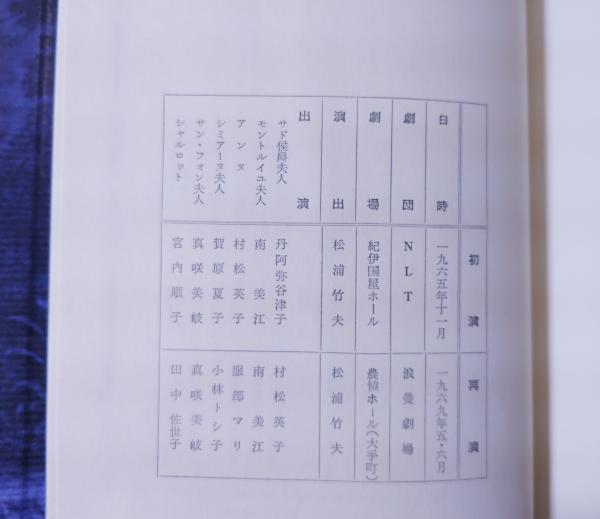 初演
再演
日時
一九六五年十一月
一九六九年五・六月
劇団
NLT
浪曼劇場
劇場
紀伊国屋ホール
農協ホール(大手町)
演出
松浦竹夫
松浦竹夫
出演
サド侯爵夫人
丹阿弥谷津子
村松英子
モントルイユ夫人
南美江
南美江
アンヌ
村松英子
服部マリ
シミアーヌ夫人
賀原夏子
小林トシ子
サン・フォン夫人
真咲美岐
真咲美岐
シャルロット
宮内順子
田中佐世子